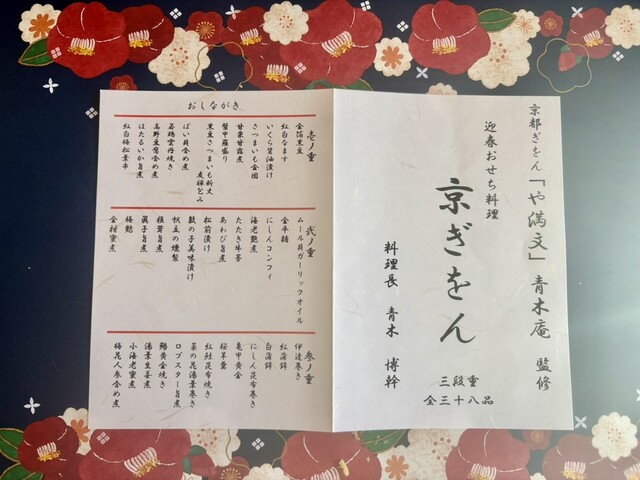 京都ぎをん「や満文」青木庵 監修
迎春おせち料理
京ぎをん
料理長 青木 博幹
三段重
全三十八品
おしながき
壱ノ重
金箔黒豆
紅白なます
いくら醤油漬け
さつまいも金団
甘栗甘露煮
蟹甲羅盛り
黒豆さつまいも祈文
友禅包み
ばい貝含め煮
若鶏雲丹焼き
高野豆腐含め煮
ほたるいか旨煮
紅白梅松葉串
弐ノ重
ムール貝ガーリックオイル
金平鯆
にしんコンフィ
海老艶煮
たたき牛蒡
あわび旨煮
松前漬け
数の子美味漬け
帆立の燻製
椎茸旨煮
真子旨煮
梅麩
金柑蜜煮
参ノ重
伊達巻き
紅蒲鉾
白蒲鉾
にしん昆布巻き
亀甲黄金
桜羊羹
紅鮭昆布焼き
菜の花湯葉巻き
ロブスター旨煮
鰆黄金焼き
湯葉生姜煮
小海老蜜煮
梅花人参含め煮